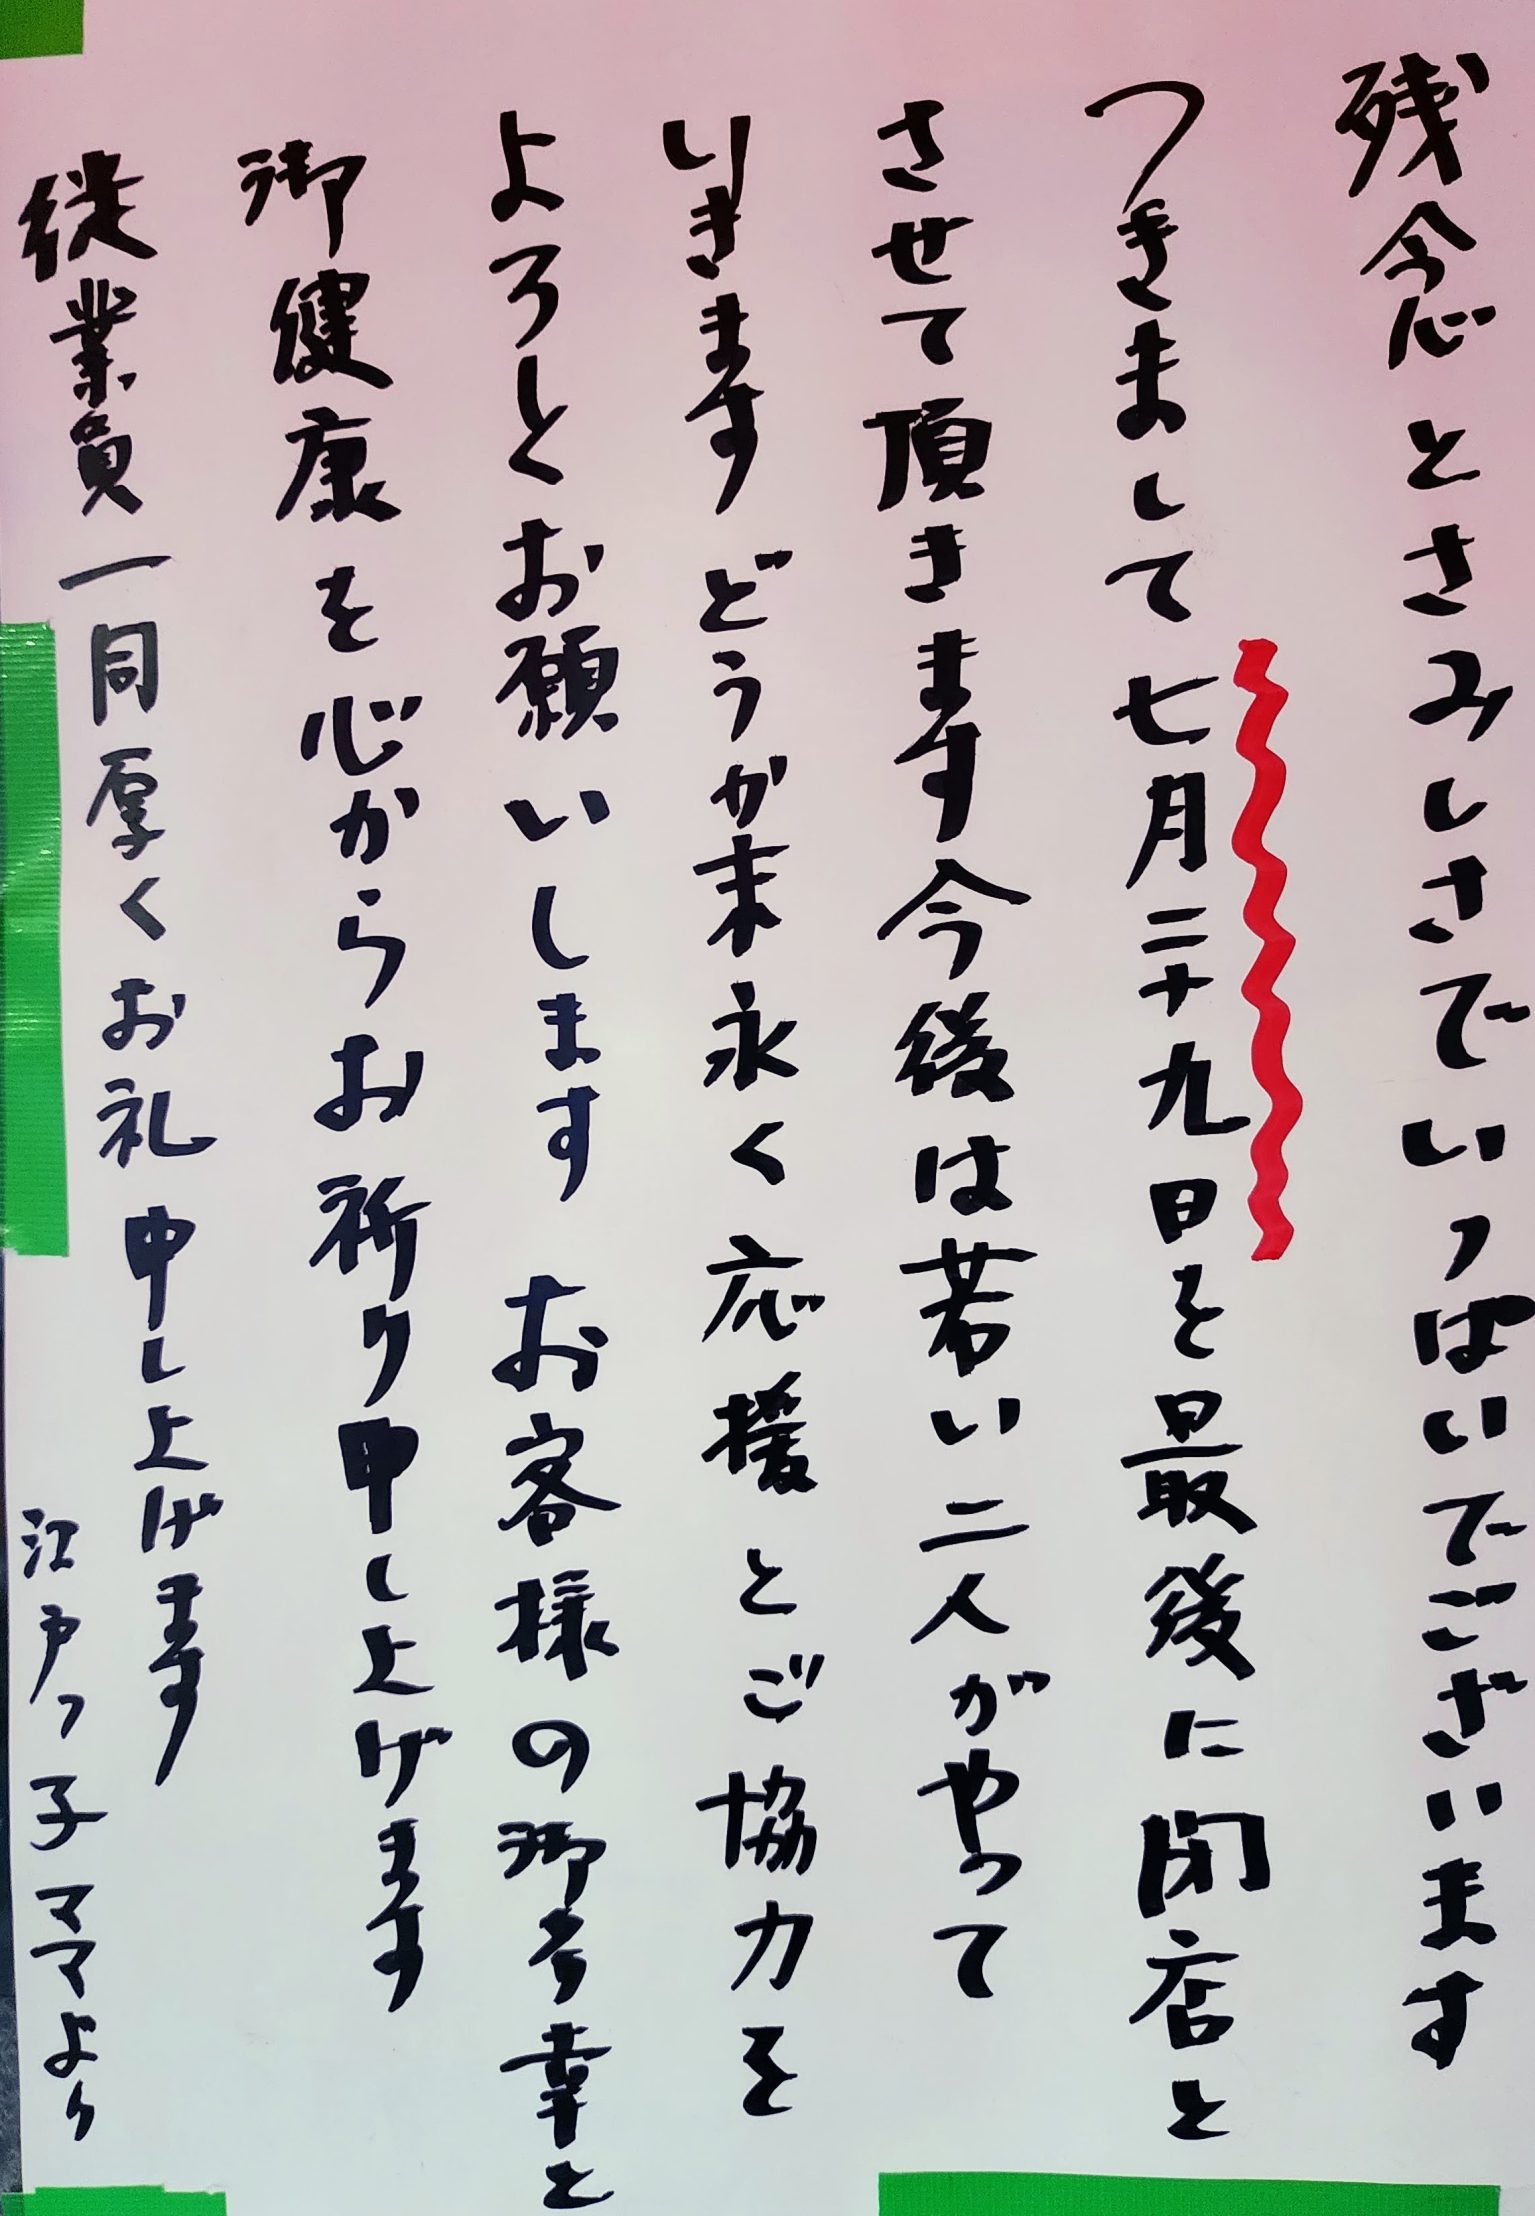 残念とさみしさでいっぱいでございます
つきまして七月二十九日を最後に閉店と
させて頂きます今後は若い二人がやって
いきます どうか末永く応援とご協力を
よろしくお願いします お客様の御多幸と
御健康を心からお祈り申し上げます
従業員一同厚くお礼申し上げます
江戸っ子ママより